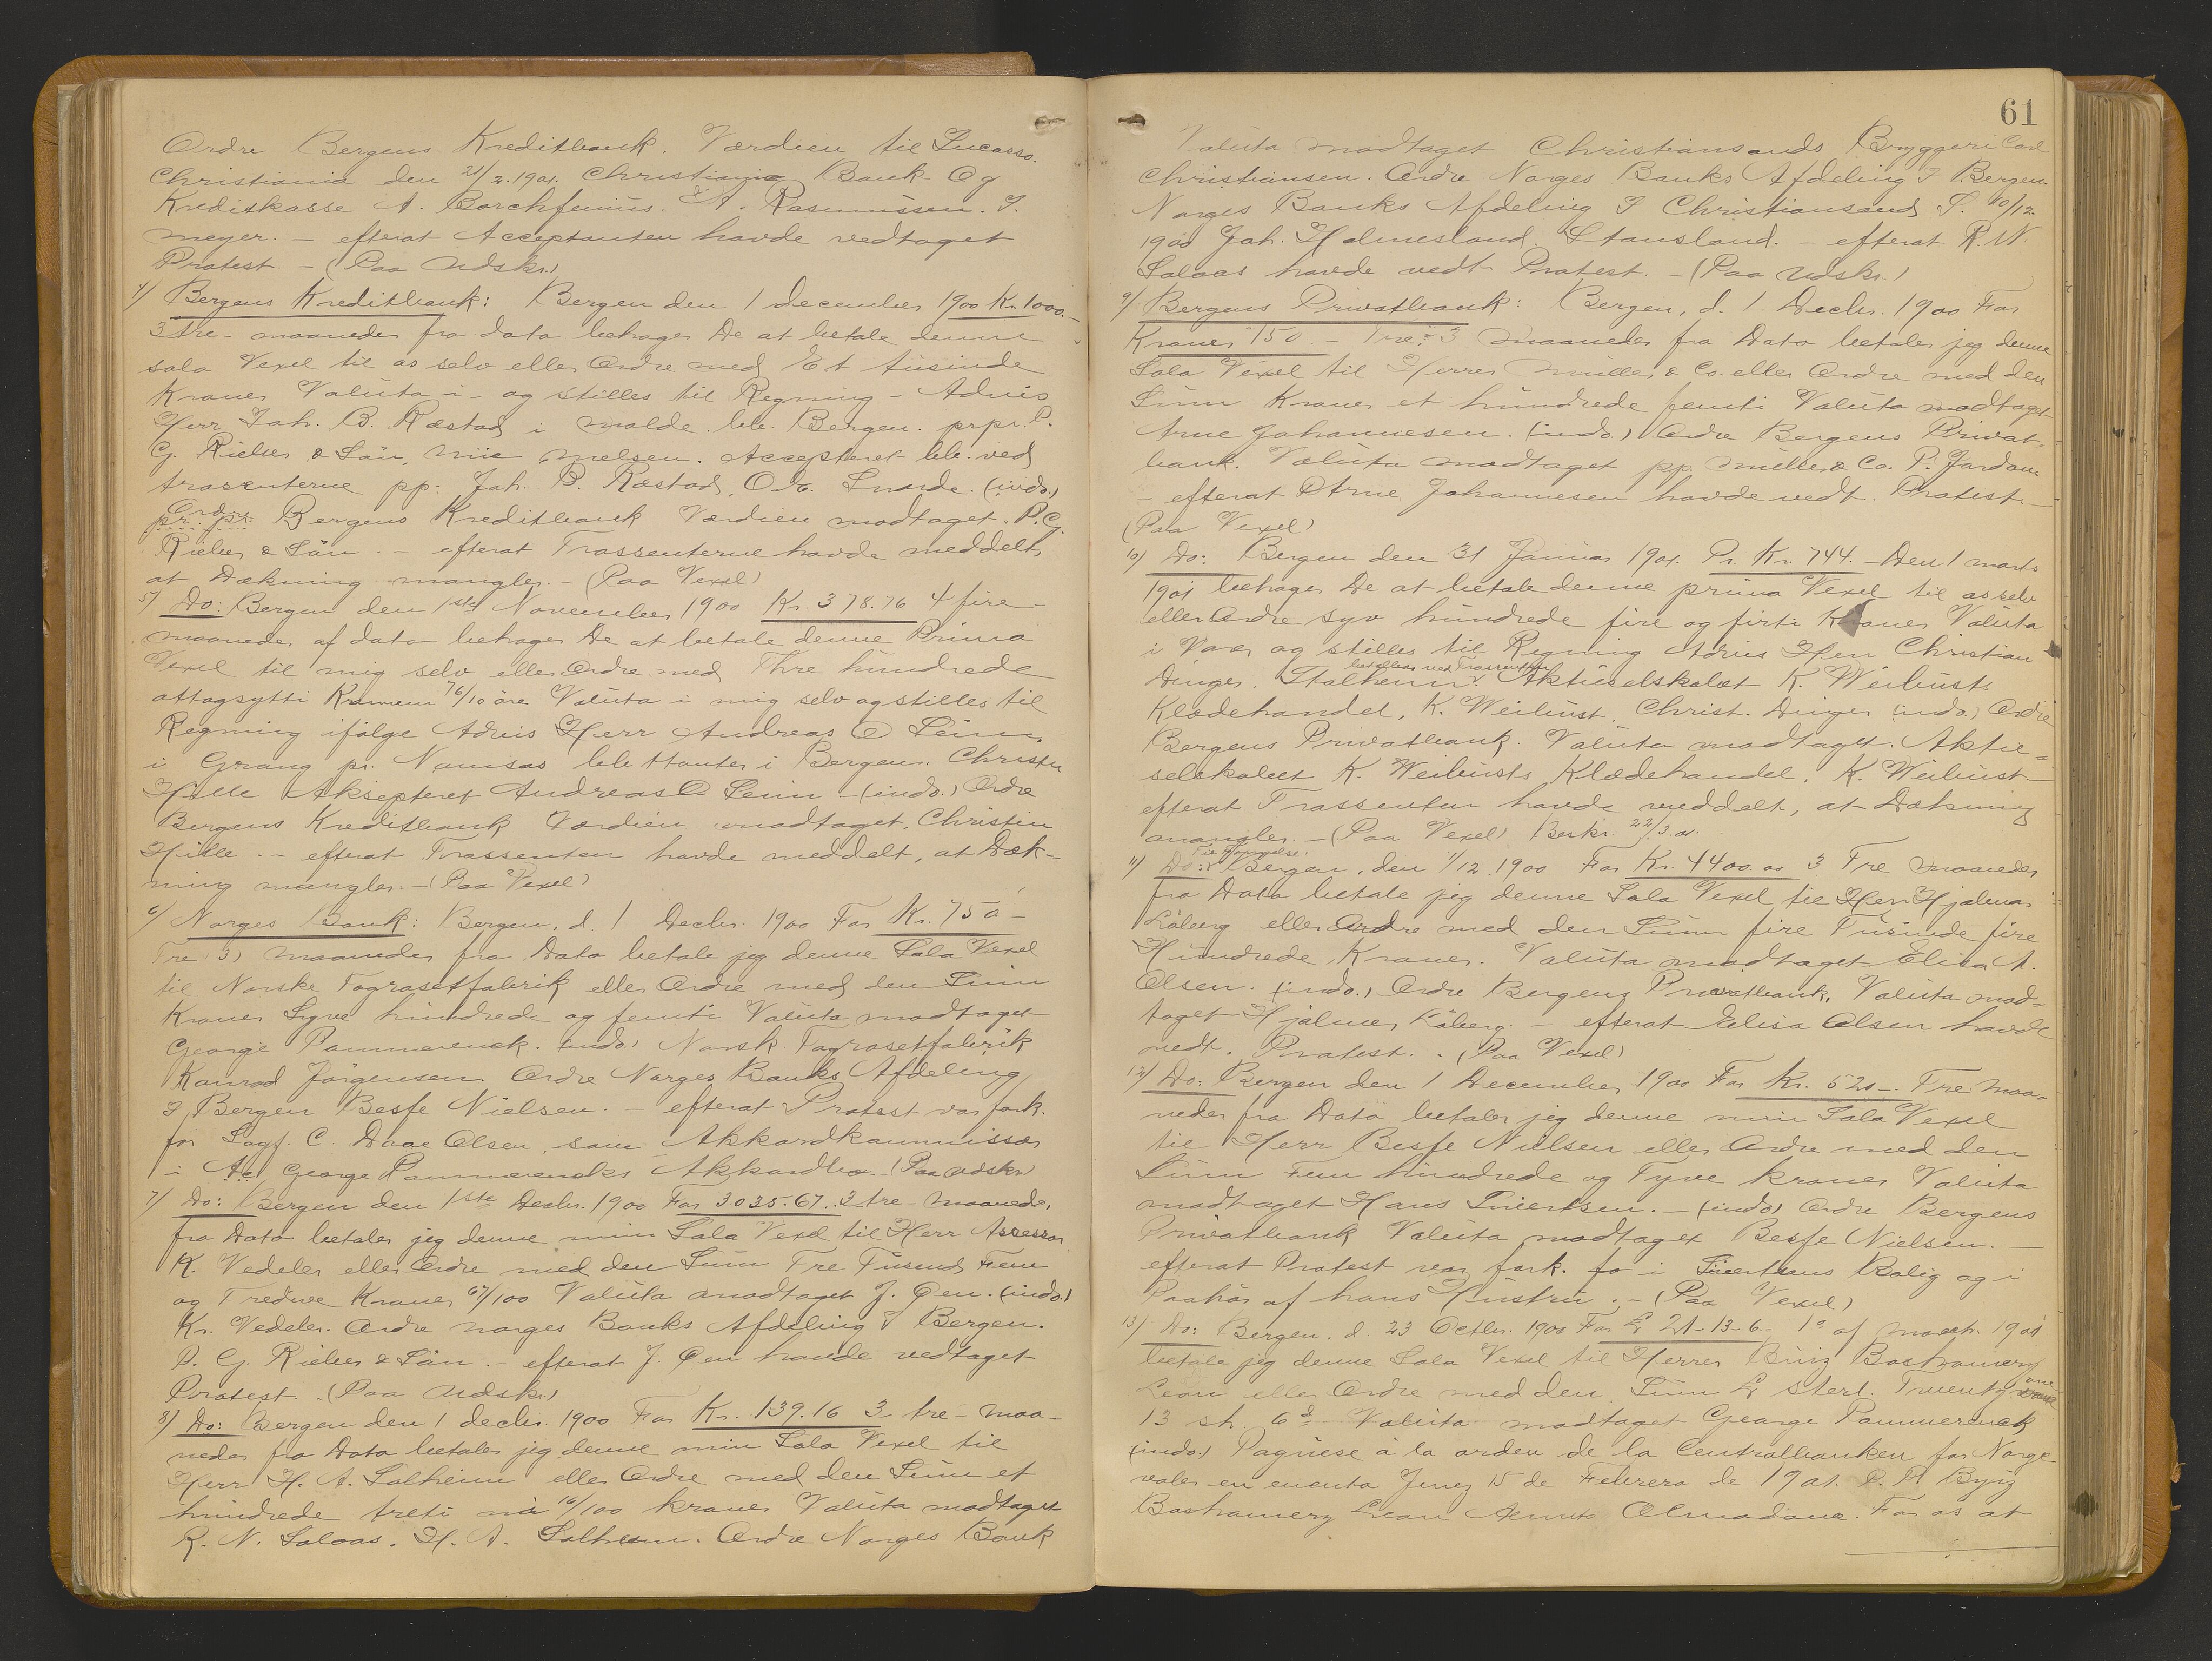 Ordre Bergens Kreditbank. Værdien til Incasso.
Christiania den 21/2.1901. Christiania Bank Og
Kreditkasse A. Borchfenius. A. Rasmussen. I.
meyer. – efterat Acceptanten havde vedtaget
Protest. – (Paa Udskr.)
4) Bergens Kreditbank: Bergen den 1 december 1900 Kr. 1000.–
3 tre – maaneder fra dato behager De at betale denne
sola Vexel til os selv eller Ordre med Et tusinde
Kroner Valuta i – og stilles til Regning – Advis
Herr Joh. B. Ræstad i Molde bet. Bergen. prpr. P.
G. Rieber & Søn, Nielsen. Accepteret bet. ved
trassenterne pp. Joh. B. Ræstad, O. Snorde. (indo.)
Ordre
pr. pr. Bergens Kreditbank Værdien modtaget. P.G.
Rieber & Søn. – efterat Trassenterne havde meddelt,
at Dækning mangler. – (Paa Vexel)
5) Do: Bergen den 1ste November 1900 Kr. 378.76 4 fire –
maaneder af dato behager De at betale denne Prima
Vexel til mig selv eller Ordre med Thre hundrede
ottogsytti Kroner 76/10 øre Valuta i mig selv og stilles til
Regning ifølge Advis Herr Andreas O Lein
i Grong pr. Namsos bet. i Bergen. Christen
Hille Aksepteret Andreas O Lein – (indo.) Ordre
Bergens Kreditbank Værdien modtaget. Christen
Hille. – efterat Trassenten havde meddelt, at Dæk-
ning mangler. – (Paa Vexel)
6) Norges Bank: Bergen, d. 1 Decbr. 1900 For Kr. 750 –
Tre (3) maaneder fra Dato betale jeg denne Sola Vexel
til Norske Fagrosetfabrik eller Ordre med den Sum
Kroner Syv hundrede og femti Valuta modtaget
George Pommerenck. indo. Norsk Fagrosetfabrik
Konrad Jørgensen. Ordre Norges Banks Afdeling
I Bergen Besfe Nielsen. – efterat Protest var fork.
for Sagf. C. Daae Olsen, som Akkordkommissær
i George Pommerencks Akkordbo. (Paa Udskr.)
7) Do: Bergen den 1ste Decbr. 1900 For 3035.67. 3 tre – maaneder
fra Dato betaler jeg denne min Sola Vexel til Herr Assessor
K. Vedeler eller Ordre med den Sum Tre Tusend Fem
og Tredive Kroner 67/100 Valuta modtaget J. Øen. (indo.)
Kr. Vedeler. Ordre Norges Banks Afdeling I Bergen.
P. G. Rieber & Søn. – efterat J. Øen havde vedtaget
Protest. (Paa Udskr.)
8) Do: Bergen den 1 decbr. 1900 For Kr. 139.16 3 tre – maa-
neder fra Dato betaler jeg denne min Sola Vexel til
Herr H. A. Solheim eller Ordre med den Sum et
hundrede treti ni 16/100 kroner Valuta modtaget
R. N. Soloas. H. A. Solheim. Ordre Norges Bank
61
Valuta modtaget Christiansands Bryggeri Carl
Christiansen. Ordre Norges Banks Afdeling I Bergen.
Norges Banks Afdeling I Christiansand S. 10/12.
1900 Joh. Holmesland. Stansland. – efterat R. N.
Soloas havde vedt. Protest. – (Paa Udskr.)
9) Bergens Privatbank: Bergen, d. 1. Decbr. 1900 For
Kroner 150. – Tre 3 maaneder fra Dato betaler jeg denne
Sola Vexel til Herrer Müller & Co. eller Ordre med den
Sum Kroner et hundrede femti Valuta modtaget
Arne Johannesen. (indo.) Ordre Bergens Privat-
bank. Valuta modtaget pp. Müller & Co. P. Jordan
– efterat Arne Johannesen havde vedt. Protest. –
(Paa Vexel)
10) Do: Bergen den 31 Januar 1901. Pr. Kr. 744. – Den 1 marts
1901 behager De at betale denne prima Vexel til os selv
eller Ordre syv hundrede fire og firti Kroner Valuta
i Varer og stilles til Regning Advis Herr Christian
betalbar ved Trassenten
Dinger. Stalheim. Aktieselskabet K. Weibusts
Klædehandel, K. Weibust. Christ. Dinger (indo.) Ordre
Bergens Privatbank. Valuta modtaget. Aktie-
selskabet K. Weibusts Klædehandel. K. Weibust –
efterat Trassenten havde meddelt, at Dækning
mangler. – (Paa Vexel) Beskr. 22/3.01.
11) Do: Bergen, den 1/12.1900 For Kr. 4400.00 3 Tre maaneder
fra Dato betale jeg denne Sola Vexel til Herr Hjalmar
Løberg eller Ordre med den Sum fire Tusinde fire
Hundrede Kroner. Valuta modtaget Elisa A.
Olsen. (indo.) Ordre Bergens Privatbank, Valuta mod-
taget Hjalmar Løberg. – efterat Elisa Olsen havde
vedt. Protest. – (Paa Vexel)
12) Do: Bergen den 1 December 1900 For Kr. 520 –. Tre Maa-
neder fra Dato betaler jeg denne min Sola Vexel
til Herr Besfe Nielsen eller Ordre med den
Sum Fem hundrede og Tyve kroner Valuta
modtaget Hans Sivertsen. – (indo) Ordre Bergens
Privatbank Valuta modtaget Besfe Nielsen. –
efterat Protest var fork. i Sivertsens Bolig og i
Paahør af hans Hustru. – (Paa Vexel)
13) Do: Bergen, d. 23 Octbr. 1900 For £ 21-13-6- 1º of march 1901
betale jeg denne Sola Vexel til Herrer Ruiz
one
Leon eller Ordre med den Sum £ Sterl. Twenty
13 sh. 6d Valuta modtaget George Pommerenck
(indo.) Paguese á la orden de la Centralbanken for Norge
valor en cuenta Jerez 15 de Febrero de 1901. P. P. Ruiz
Leon Almadana. For os at